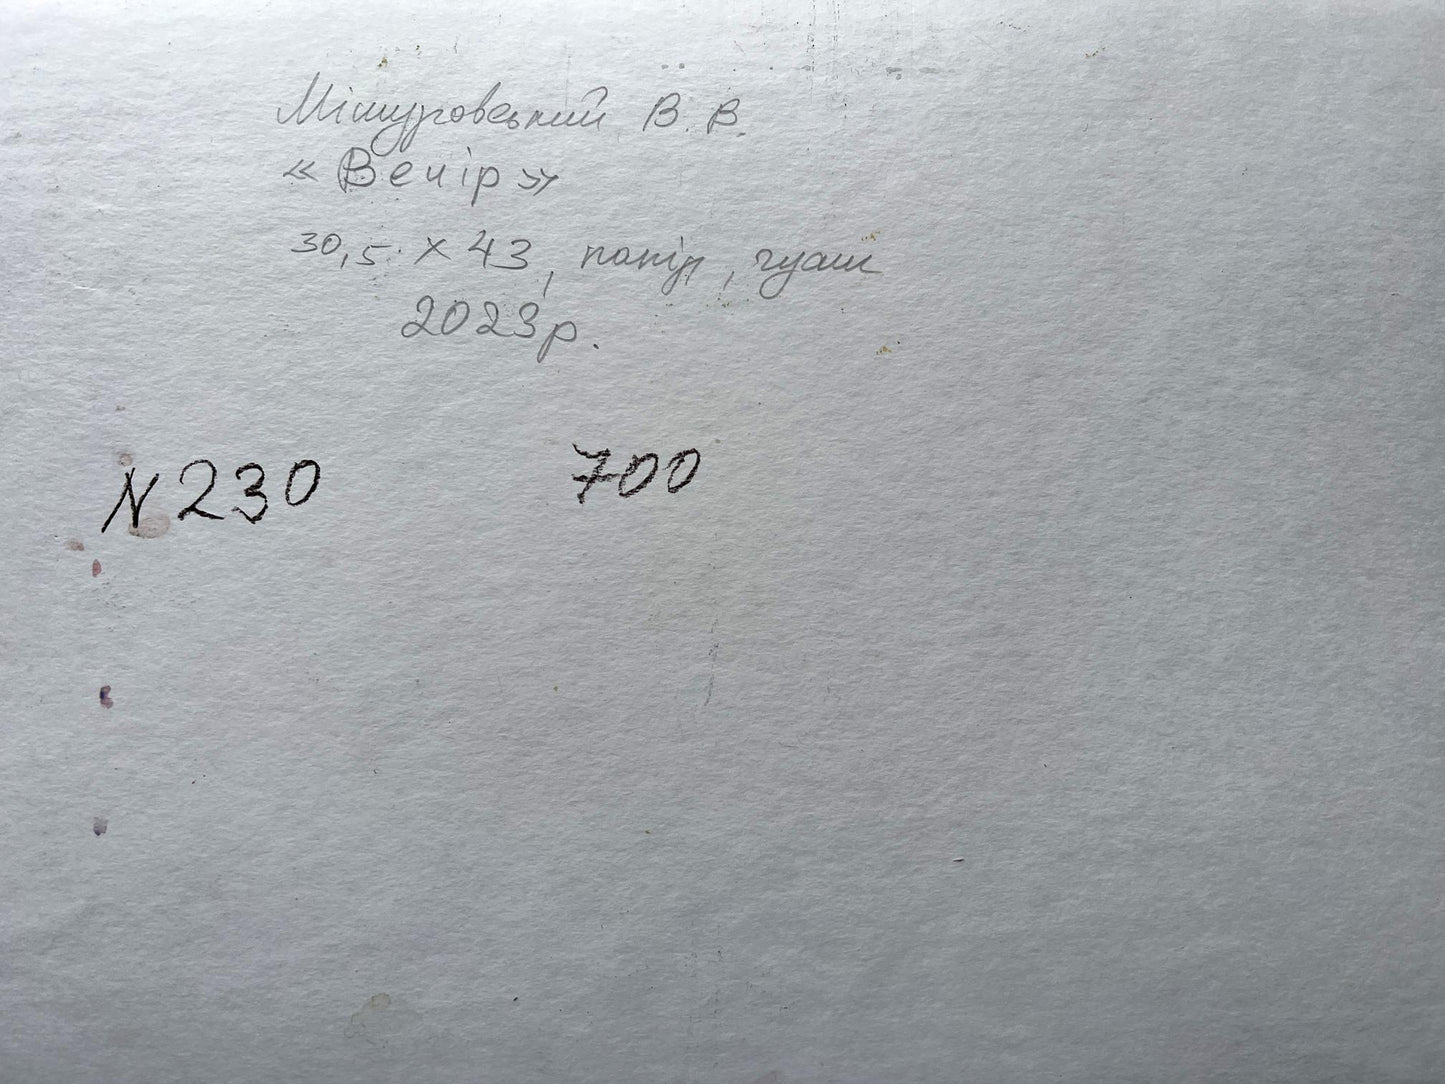 Мішуровський В. В.
«Вечір»
30,5 х 43, папір, гуаш
2023р.
N 230 700